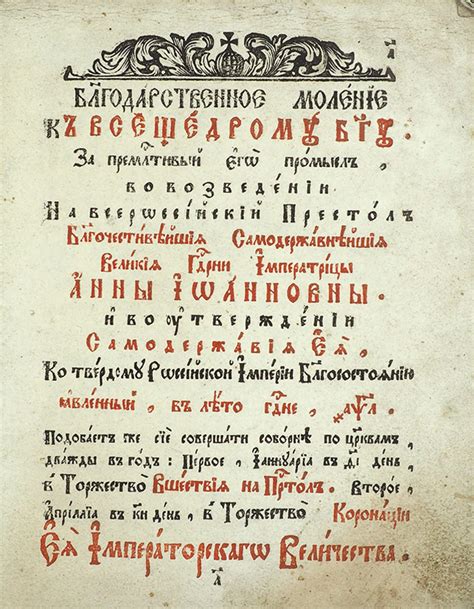 а҃
БЛ҃ГОДАРСТВЕННОЕ МОЛЕНІЕ
КЪ ВСЕЩЕДРОМꙊ БГ҃Ꙋ.
За премл҃тивый єгѡ̀ промыслъ,
во возведеніи
На всерѡссійскій Престолъ
Бл҃гочестивѣйшія Самодержавнѣйшія
Великія Гд҃рни Імператрицы
АННЫ ІѠАННОВНЫ.
И во ᲂутвержденіи
Самодержавія Єѧ̀
Ко твердому Рѡссійской Імперіи Благосостоѧнію
ꙗвленный, въ лѣто гд҃не,
Подобаетъ же сіе совершати соборнѣ по цр҃квамъ,
дважды въ годъ: Первое, Іаннуаріа въ день,
в Торжество Вшествія на Прⷭ҇толъ. Второе,
Апріліа въ к҃и день, в Торжество Коронаціи
Єѧ̀ Імператорскагѡ Величества.
а҃